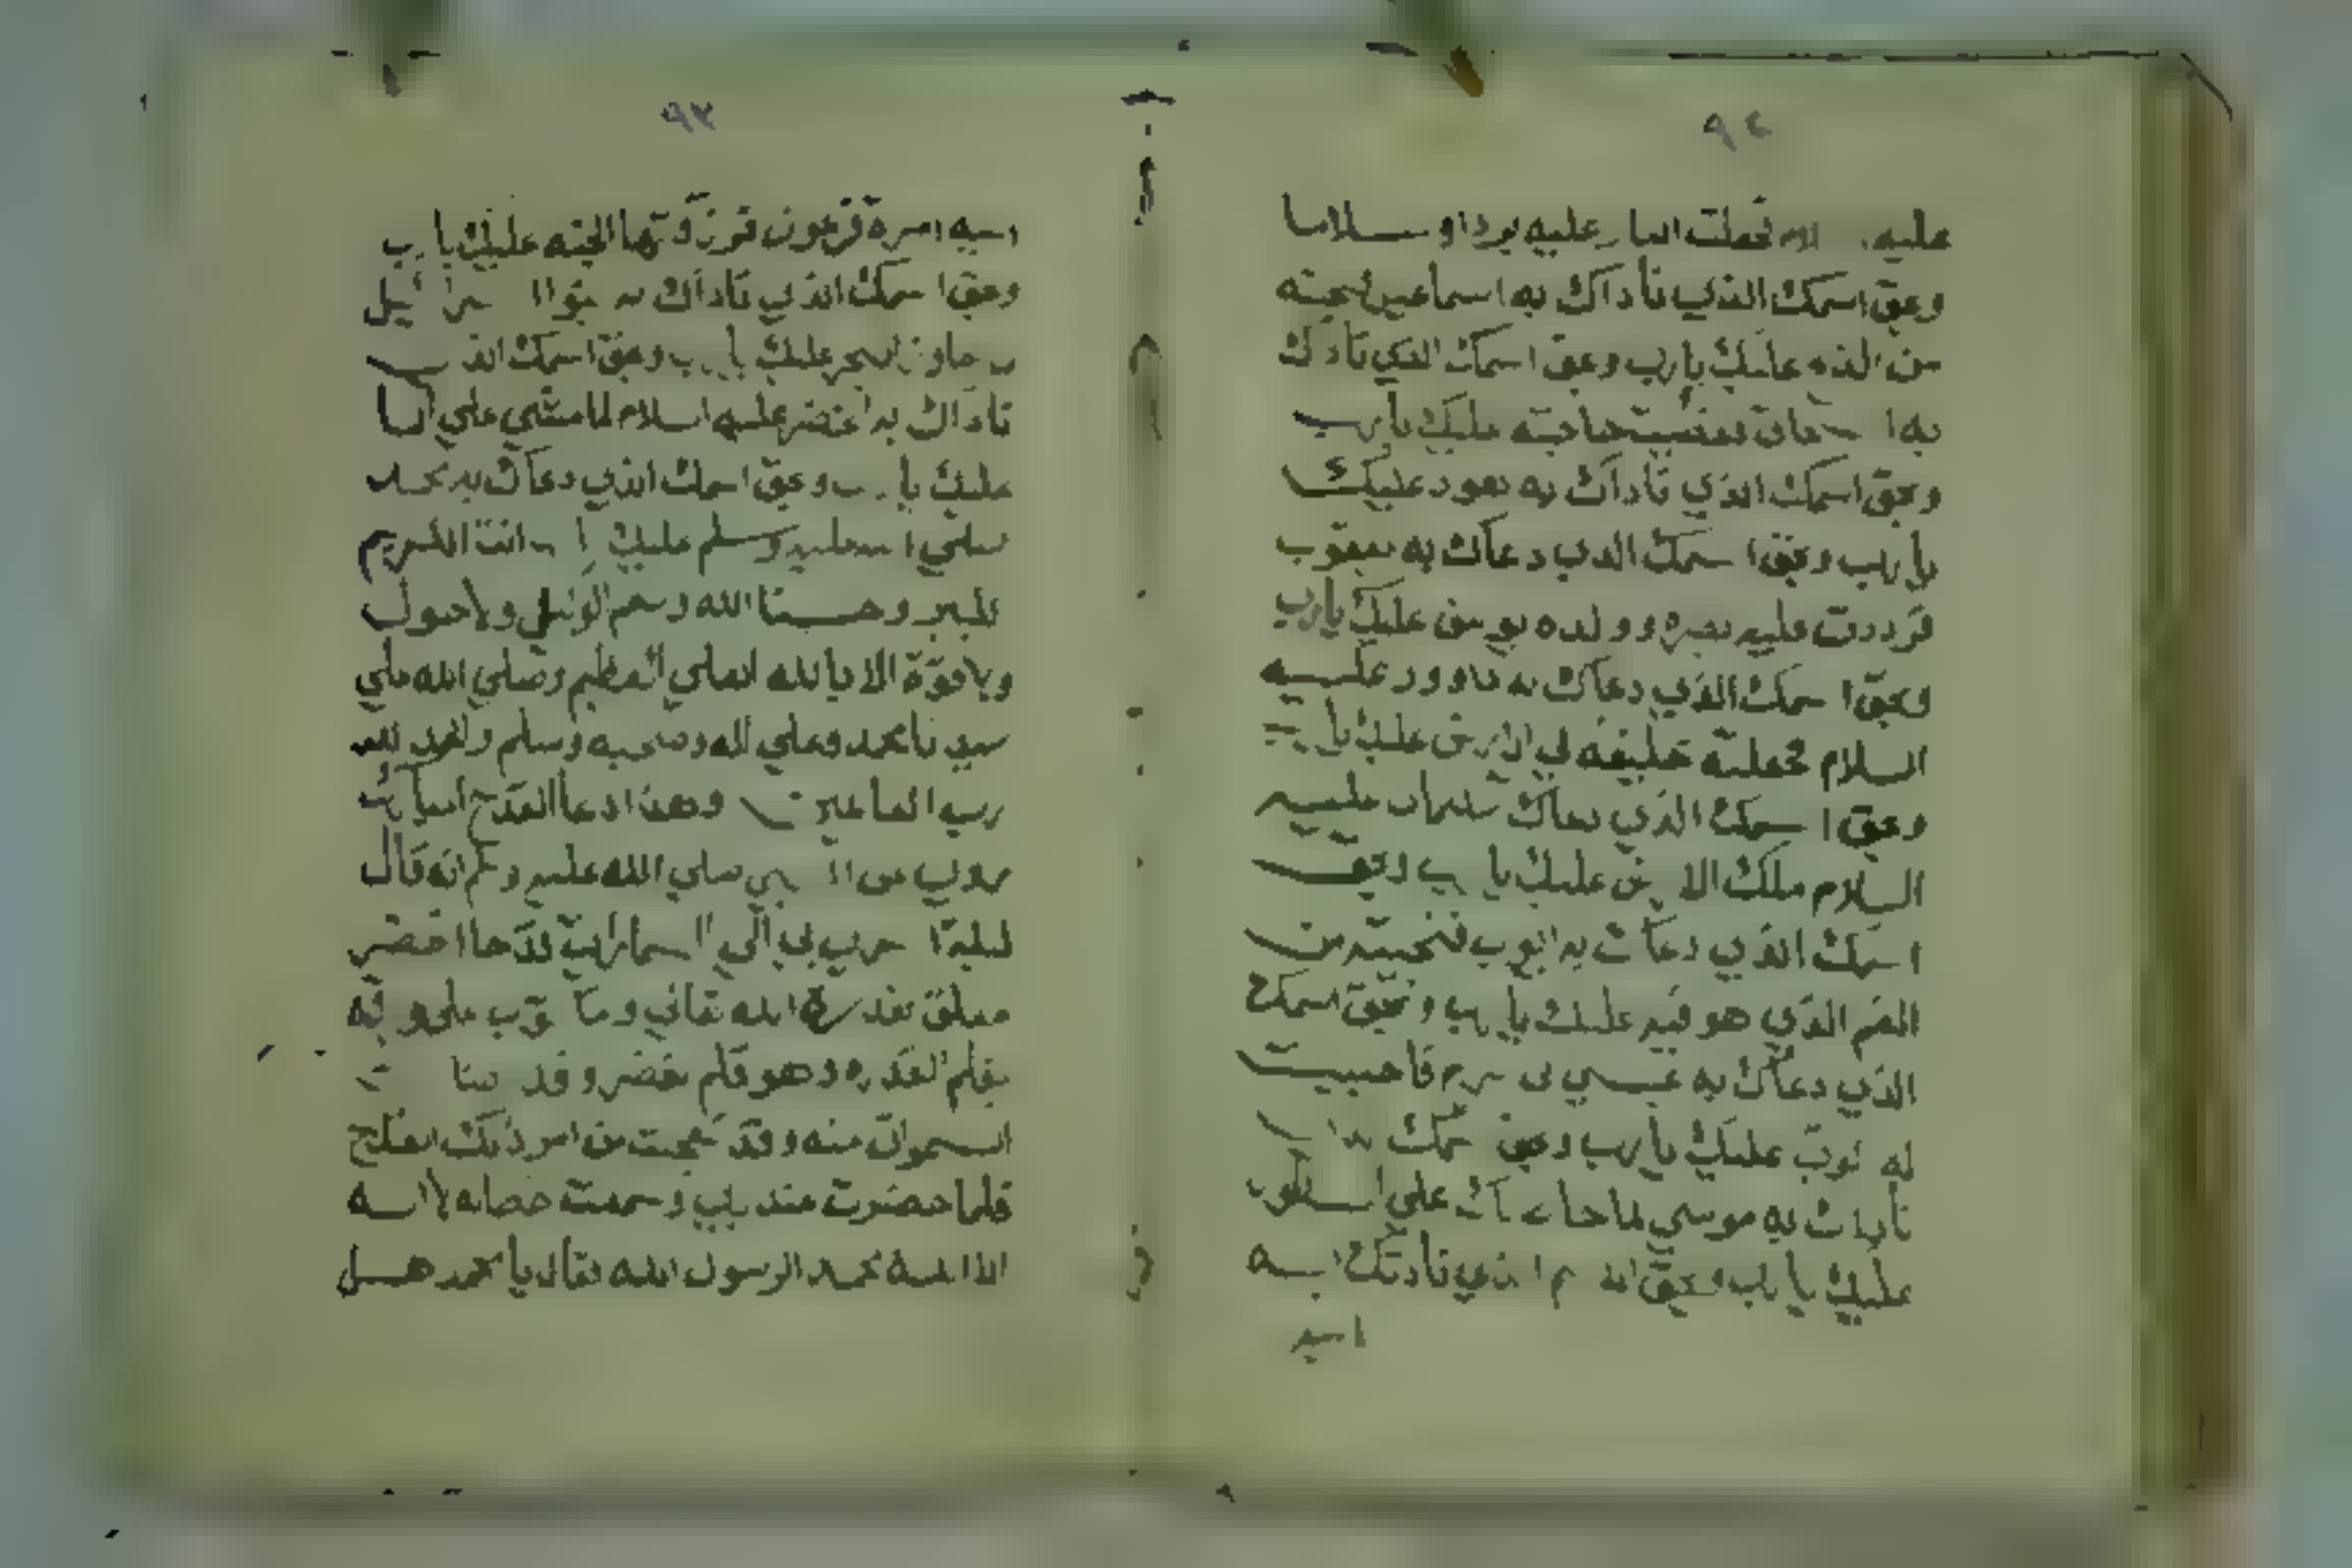 ٩٤
عليه فجعلت عليه بردا وسلاما
وبحق اسمك الذي ناداك به اسماعيل فنجيته
من الذبح عليك يارب وبحق اسمك الذي ناداك
به اسحاق فقضيت حاجته عليك يارب
وبحق اسمك الذي ناداك به هود عليك
يارب وبحق اسمك الذي دعاك به يعقوب
فرددت عليه بصره وولده يوسف عليك يارب
وبحق اسمك الذي دعاك به داوود عليه
السلام فجعلته خليفه في الارض عليك يارب
وبحق اسمك الذي دعاك سليمان عليه
السلام ملك الارض عليك يارب وبحق
اسمك الذي دعاك به ايوب فنجيته من
الغم الذي هو فيه عليك يارب وبحق اسمك
الذي دعاك به عيسي بن مريم فاحييت
له عليك يارب وبحق اسمك
ناداك به موسي لما علي الطور
عليك يارب وبحق الذي نادتك به
اسيه
٩٣
اسيه امرة فرعون فرزقتها الجنه عليك يارب
وبحق اسمك الذي ناداك به بنوا اسرائيل
البحر عليك يارب وبحق اسمك الذي
ناداك به الخضر عليه السلام لما مشي علي الما
عليك يارب وبحق اسمك الذي دعاك به محمد
صلي الله عليه وسلم عليك انت الكريم
الكبير وحسبنا الله ونعم الوكيل ولاحول
ولاقوة الا بالله العلي العظيم وصلي الله علي
سيدنا محمد وعلي اله وصحبه وسلم والحمد لله
رب العالمين وهذا دعا القدح المبارك
مروي عن النبي صلي الله عليه وسلم انه قال
ليلة اسري بي الي السما رايت قدحا اخضر
معلق بقدرة الله تعالي ومكتوب علي
بقلم القدره وهو قلم اخضر وقد
السموات منه وقد عجبت من امر ذلك القدح
فلما حضرت عند وسمعت لا اله
الا الله محمد الرسول الله فقال يا محمد هل